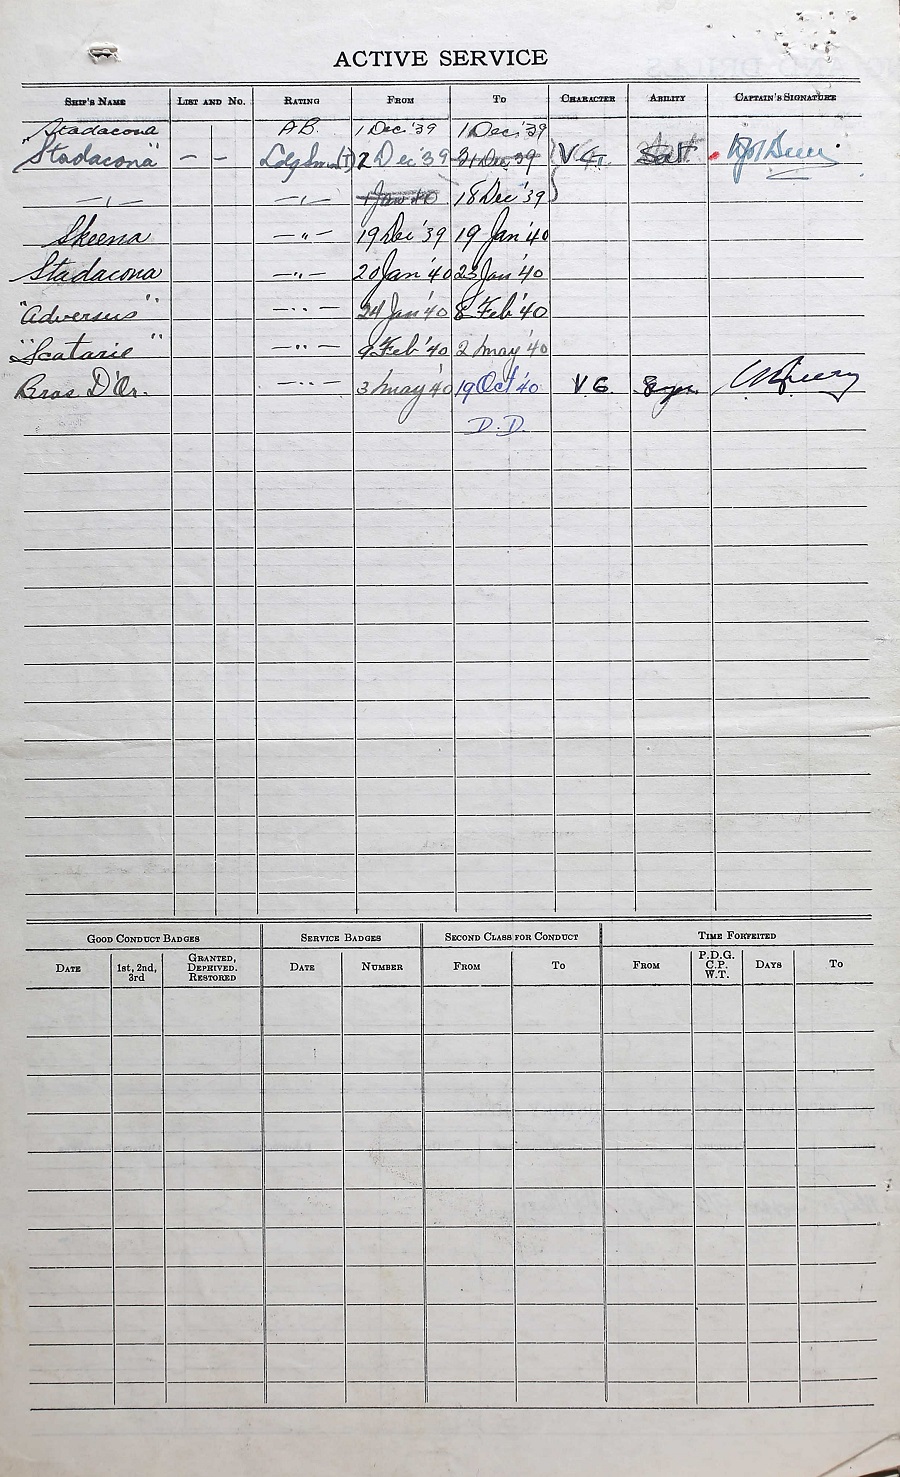 ACTIVE SERVICE
SHIP'S NAME LIST AND NO. RATING FROM TO CHARACTER ABILITY CAPTAIN'S SIGNATURE
"Stadacona A.B. 1 Dec '39 1 Dec '39
"Stadacona" – – Ldg Smn (T) 2 Dec '39 31 Dec 39 V.G. Sat
–"– –"– 1 Jan 40 18 Dec '39
Skeena –"– 19 Dec '39 19 Jan '40
Stadacona –"– 20 Jan '40 23 Jan '40
"Adversus" –"– 24 Jan '40 8 Feb '40
"Scatarie" –"– 9 Feb '40 2 May '40
Bras D'Or. –"– 3 May '40 19 Oct '40 V G.
D.D.
GOOD CONDUCT BADGES SERVICE BADGES SECOND CLASS FOR CONDUCT TIME FORFEITED
DATE 1st, 2nd, 3rd GRANTED, DEPRIVED. RESTORED DATE NUMBER FROM TO FROM P.D.G. C.P. W.T. DAYS TO